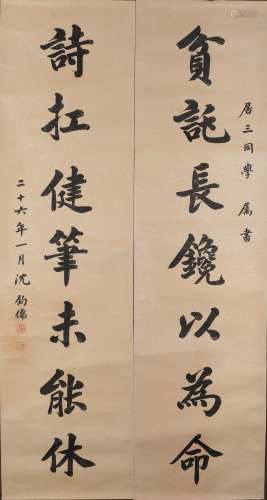 居三同學屬書
貧託長鑱以為命
詩扛健筆未能休
二十六年一月沈鈞儒